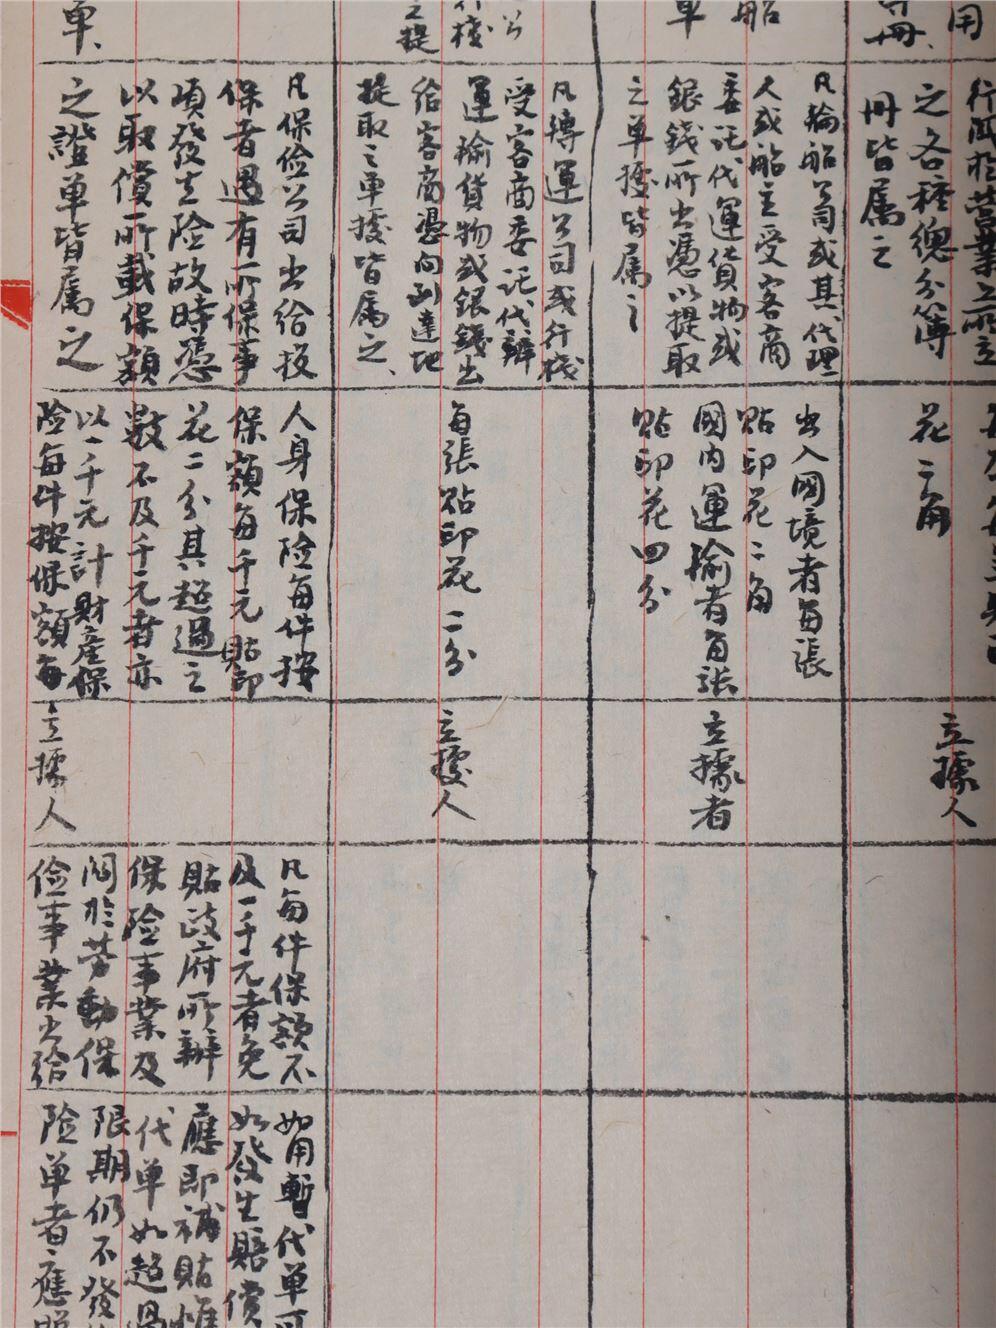 用
冊、
行所於營業上所立
之各種總分簿
冊皆屬之
花二角
立據人
船
單
凡輪船公司或其代理
人或船主受客商
委託代運貨物或
銀錢所出憑以提取
之單據皆屬之
出入國境者每張
貼印花二角
國內運輸者每張
貼印花四分
立據者
公
行棧
之提
凡轉運公司或行棧
受客商委託代辦
運輸貨物或銀錢出
給客商憑向到達地
提取之單據皆屬之、
每張貼印花二分
立據人
單、
凡保險公司出給投
保者遇有所保事
項發生險故時憑
以取償所載保額
之證單皆屬之
人身保險每件按
保額每千元貼印
花二分其超過之
數不及千元者亦
以一千元計財產保
險每件按保額每
立據人
凡每件保額不
及一千元者免
貼政府所辦
保險事業及
關於勞動保
險事業出給
如用暫代單可
如發生賠償
應即補貼惟
代單如超過
限期仍不發
險單者應照